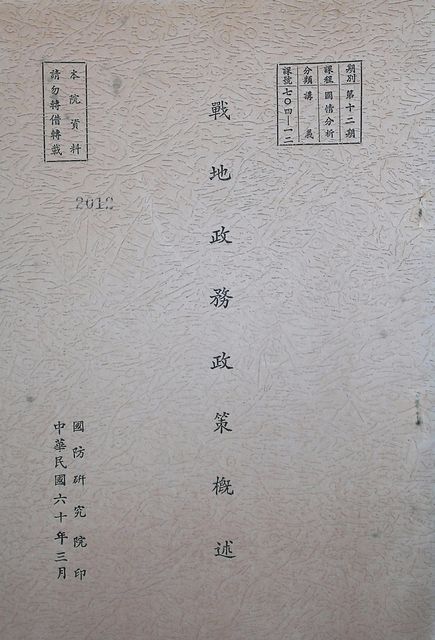 期別 第十二期
課程 國情分析
分類 講義
課號 七〇四—一二
戰地政務政策概述
本院資料
請勿轉借轉載
2012
國防研究院印
中華民國六十年三月